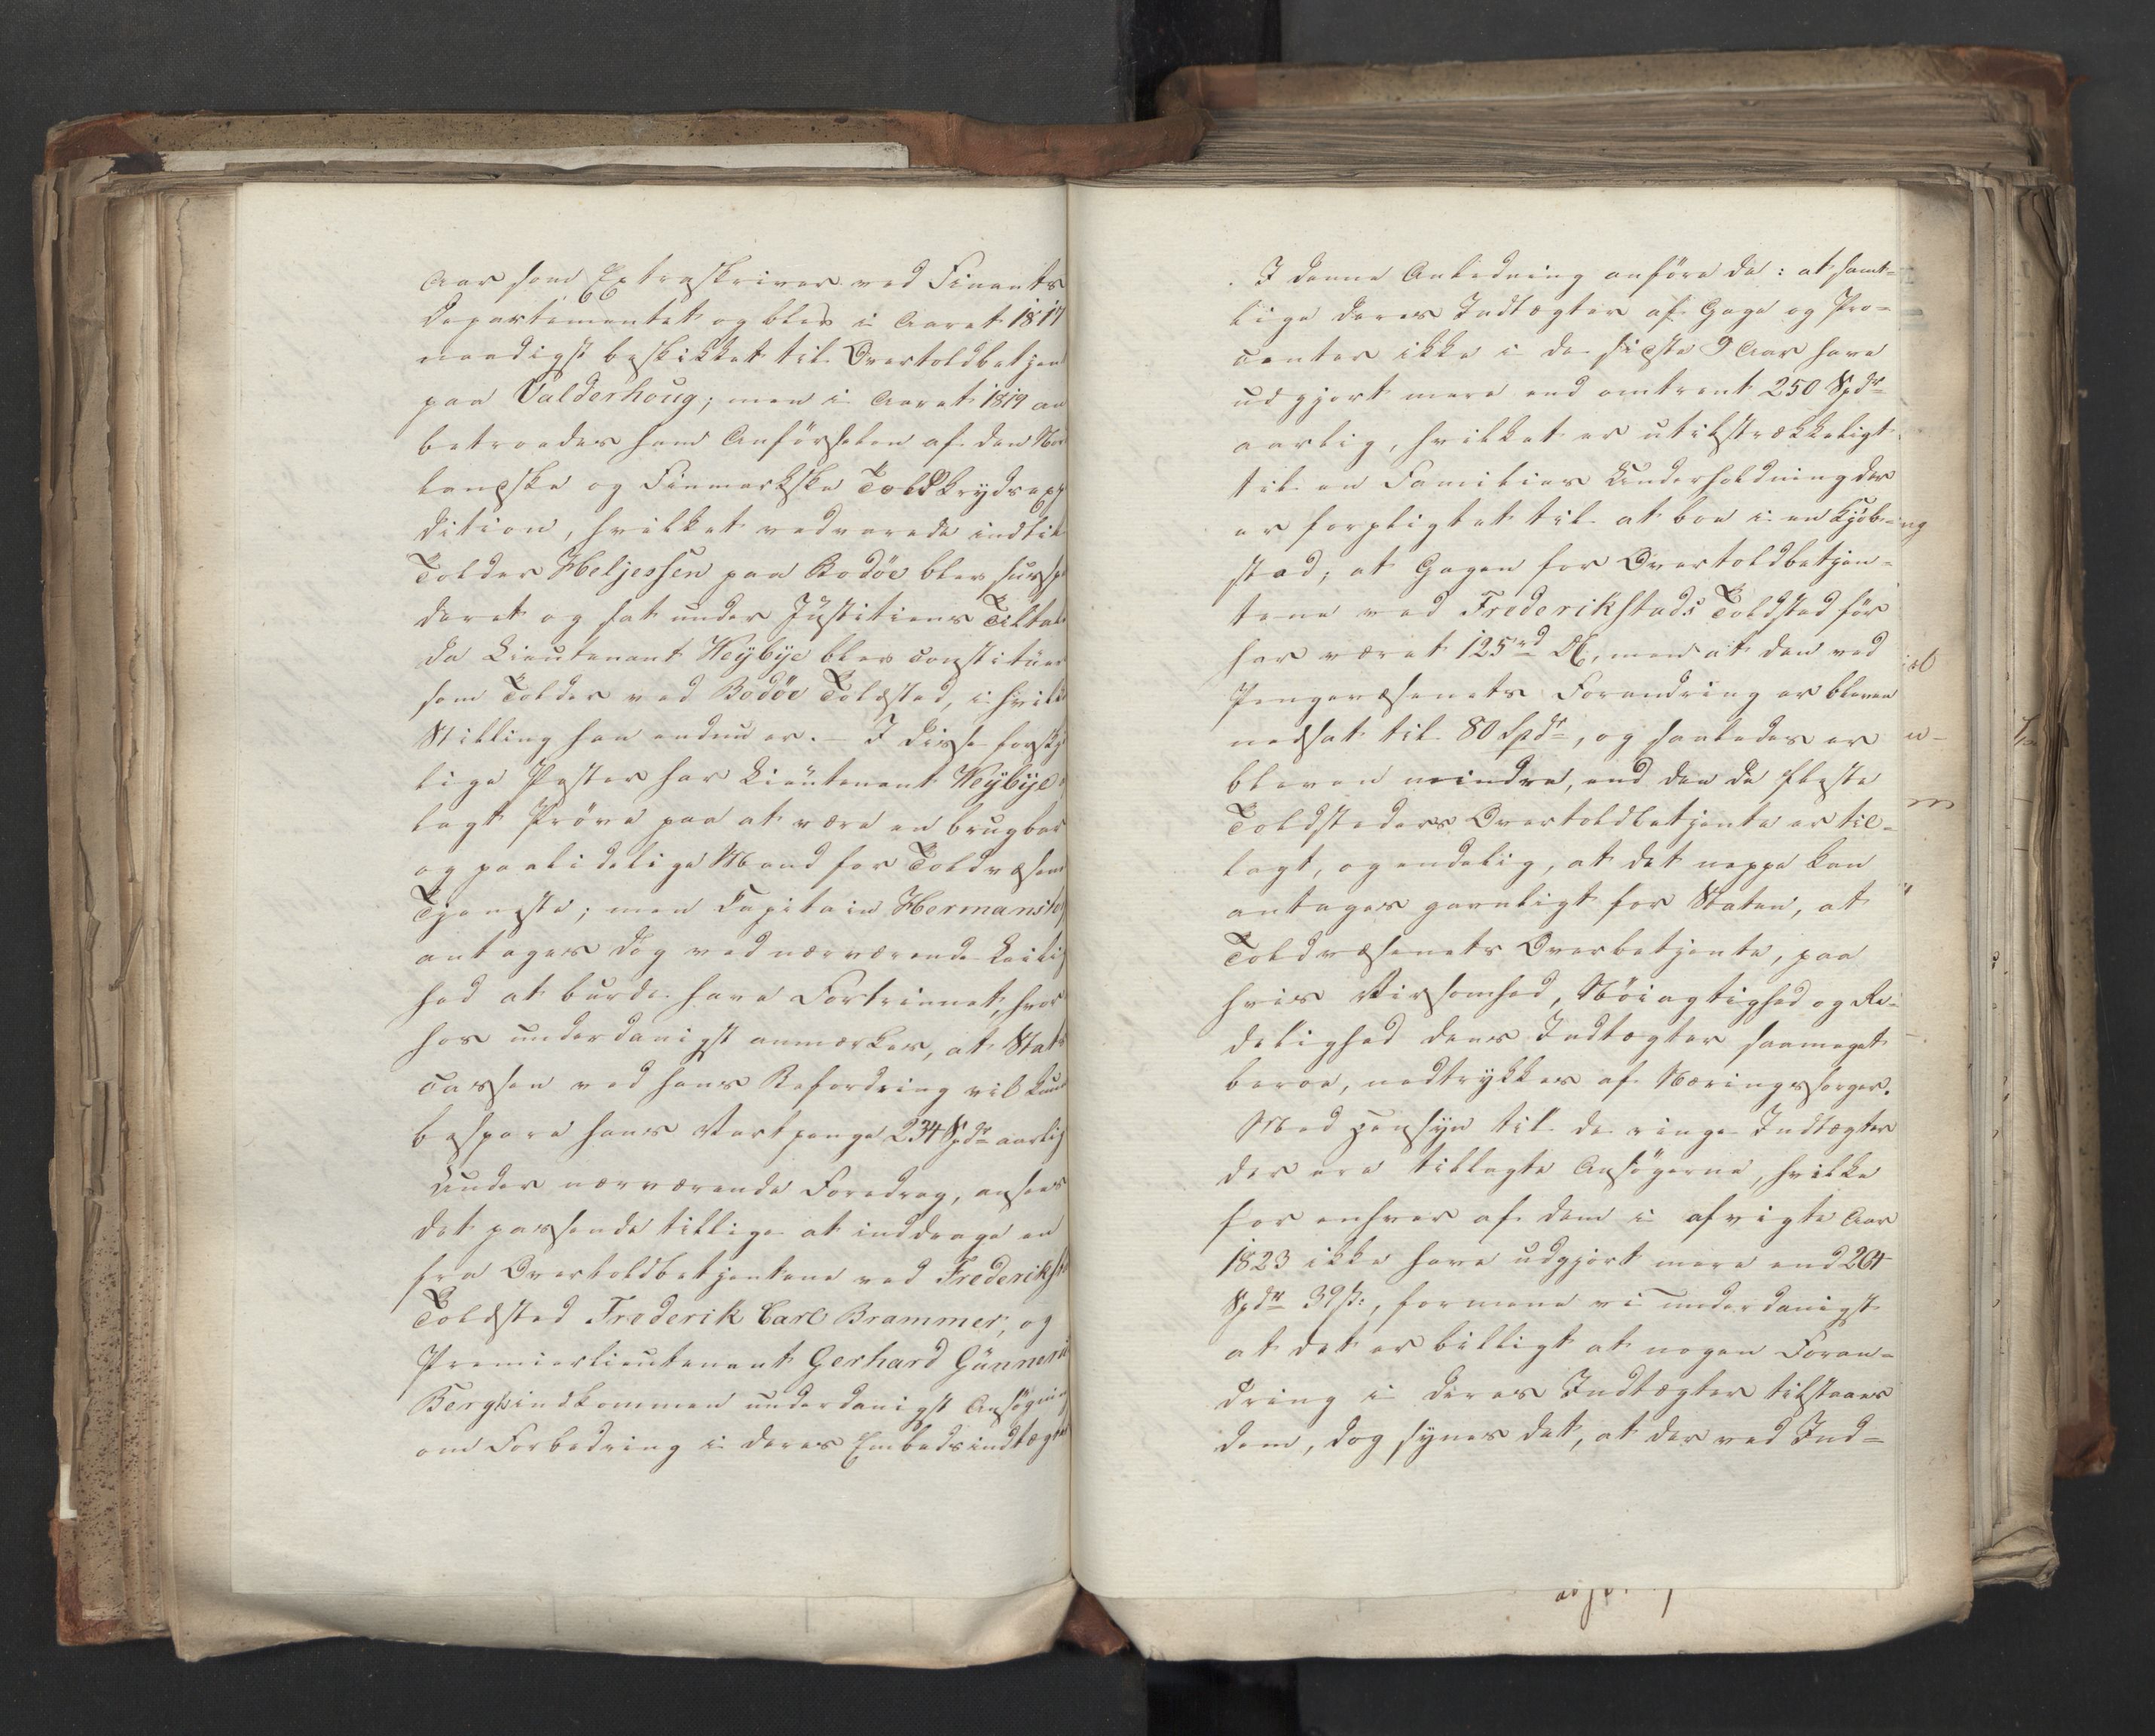 Aar som Extraskriver ved Finants
Departementet og blev i Aaret 1817
naadigst beskikket til Overtoldbetjen
paa Valderhoug; men i Aaret 1819 an
betroedes ham Anførselen af den Nor
landske og Finmarkske Toldkrydsexpe
dition, hvilket vedvarede indtil
Tolder Heljessen paa Bodöe blev suspen
deret og sat under Justitiens Tiltale
da Lieutenant Heÿbÿe blev constitueret
som Tolder ved Bodöe Toldsted, i hvilken
Stilling han endnu er. – I disse forskjel
lige Poster har Lieutenant Heÿbÿe
lagt Pröve paa at være en brugbar
og paalidelig Mand for Toldvæsenets
Tjeneste; men Capitain Hermanstof
antages dog ved nærværende Leilig
hed at burde have Fortrinnet, hvor
hos underdanigst anmærkes, at Stats
cassen ved hans Befordring vil kunne
bespare hans Vartpenge 234 Spdr aarlig
Under nærværende Foredrag, ansees
det passende tillige at inddrage en
fra Overtoldbetjentene ved Frederikstad
Toldsted Frederik Carl Brammer, og
Premierlieutenant Gerhard Günnerus
Bergh indkommen underdanigst Ansøgning
om Forbedring i deres Embedsindtægter
I denne Anledning anføre de: at samt=
lige deres Indtægter af Gage og Pro=
center ikke i de sidste 9 Aar have
udgjort mere end omtrent 250 Spdr
aarlig, hvilket er utilstrækkeligt
til en Families Underholdning der
er forpligtet til at boe i en Kjøb=
stad; at Gagen for Overtoldbetjen=
tene ved Frederikstads Toldsted før
har været 125 rd, men at den ved
Pengevæsenets Forandring er bleven
nedsat til 80 Spdr, og saaledes er
bleven mindre, end den de fleste
Toldsteders Overtoldbetjente er til=
lagt, og endelig, at det neppe kan
antages gavnligt for Staten, at
Toldvæsenets Overbetjente, paa
hvis Virksomhed, Nøiagtighed og Re=
delighed dens Indtægter saameget
beroe, nedtrykkes af Næringssorger.
Med Hensyn til de ringe Indtægter
der ere tillagte Ansøgerne, hvilke
for enhver af dem i afvigte Aar
1823 ikke have udgjort mere end 264
Spdr 39 ß:, formene vi underdanigst
at det er billigt at nogen Foran=
dring i deres Indtægter tilstaaes
dem, dog synes det, at der ved Ind=